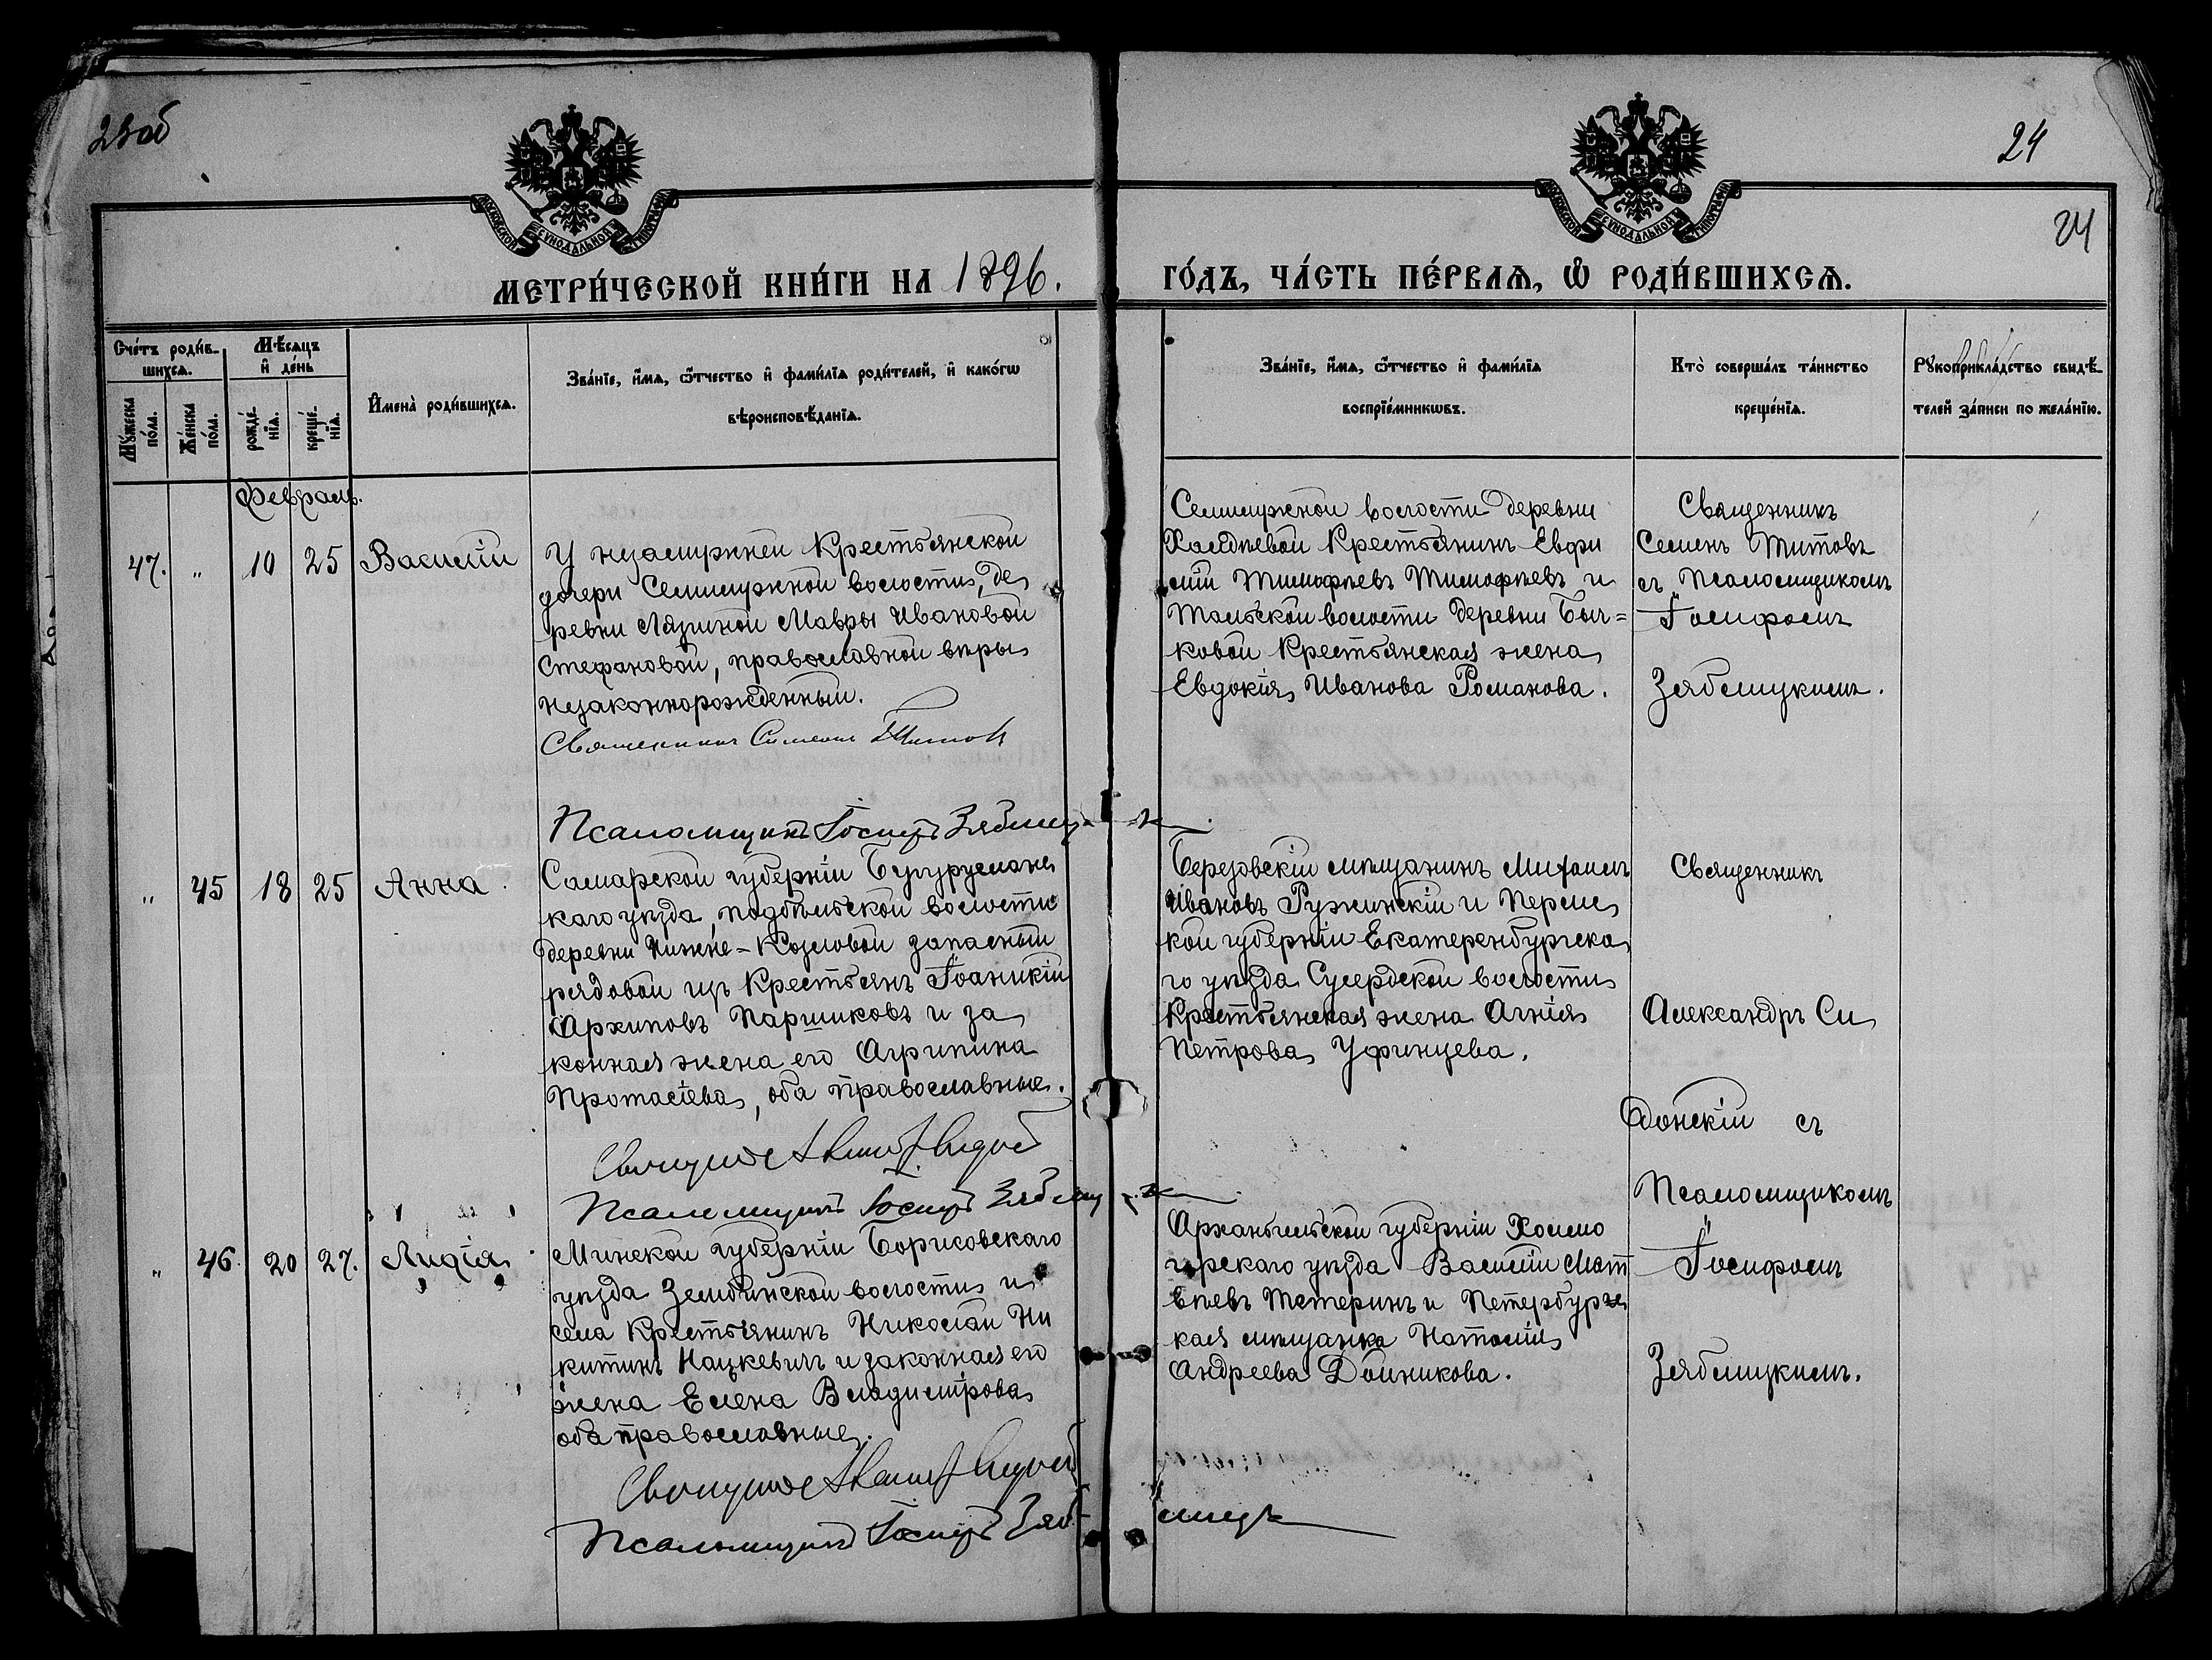 23об
24
24
МОСКОВСКОЙ СѴНОДАЛЬНОЙ ТИПОГРАФІИ
МОСКОВСКОЙ СѴНОДАЛЬНОЙ ТИПОГРАФІИ
МЕТРИ́ЧЕСКОЙ КНИ́ГИ НА 1896. ГО́ДЪ, ЧА́СТЬ ПЕ́РВАѦ, Ѡ҆ РОДИ́ВШИХСѦ.
Сче́тъ роди́в-
шихсѧ.
Мꙋ́жеска
по́ла.
Же́нска
по́ла.
Мѣ́сѧцъ
и҆ де́нь
рожде́-
нїѧ.
креще́-
нїѧ.
И҆мена̀ роди́вшихсѧ.
Зва́нїе, и҆́мѧ, ѻ҆́тчество и҆ фами́лїѧ роди́телей, и҆ како́гѡ
вѣроисповѣ́данїѧ.
Зва́нїе, и҆́мѧ, ѻ҆́тчество и҆ фами́лїѧ
воспрїе́мникѡвъ.
Кто̀ соверша́лъ та́инство
креще́нїѧ.
Рꙋкоприкла́дство свидѣ́-
телей за́писи по жела́нїю.
Февраль.
47. " 10 25 Василій
У незамужней Крестьянской
дочери Семилужной волости, де
ревни Лязгиной Мавры Ивановой
Стефановой, православной вѣры
незаконнорожденный.
Священникъ Симеонъ Титовъ
Псаломщикъ Іосифъ Зяблицк
Семилужной волости деревни
Халдѣевой Крестьянинъ Евфи
мій Тимофѣевъ Тимофѣевъ и
Тальской волости деревни Быч=
ковой Крестьянская жена
Евдокія Иванова Романова.
Священникъ
Семенъ Титовъ
съ Псаломщикомъ
Іосифомъ
Зяблицкимъ.
" 45 18 25 Анна
Самарской губерніи Бугурусланс
каго уѣзда, подбѣльской волости
деревни Нижне-Козловой запасный
рядовой изъ Крестьянъ Іоаникій
Архиповъ Паршиковъ и за
конная жена его Агрипина
Протасіева, оба православные.
Псаломщикъ Іосифъ Зяблиц
Березовскій мѣщанинъ Михаилъ
Ивановъ Ружинскій и Пермс
кой губерніи Екатеренбургска
го уѣзда Сысердской волости
Крестьянская жена Агнія
Петрова Уфинцева.
Священникъ
Александръ Си
донскій съ
Псаломщикомъ
Іосифомъ
Зяблицкимъ.
" 46. 20 27. Лидія
Минской губерніи Борисовскаго
уѣзда Зембинской волости и
села Крестьянинъ Николай Ни
китинъ Нацкевичъ и законная его
жена Елена Владимірова
оба православные.
Псаломщикъ Іосифъ Зяб
лицк
Архангельской губерніи Холмо
горскаго уѣзда Василій Мат
вѣевъ Тетеринъ и Петербургс
кая мѣщанка Наталія
Андреева Дойникова.